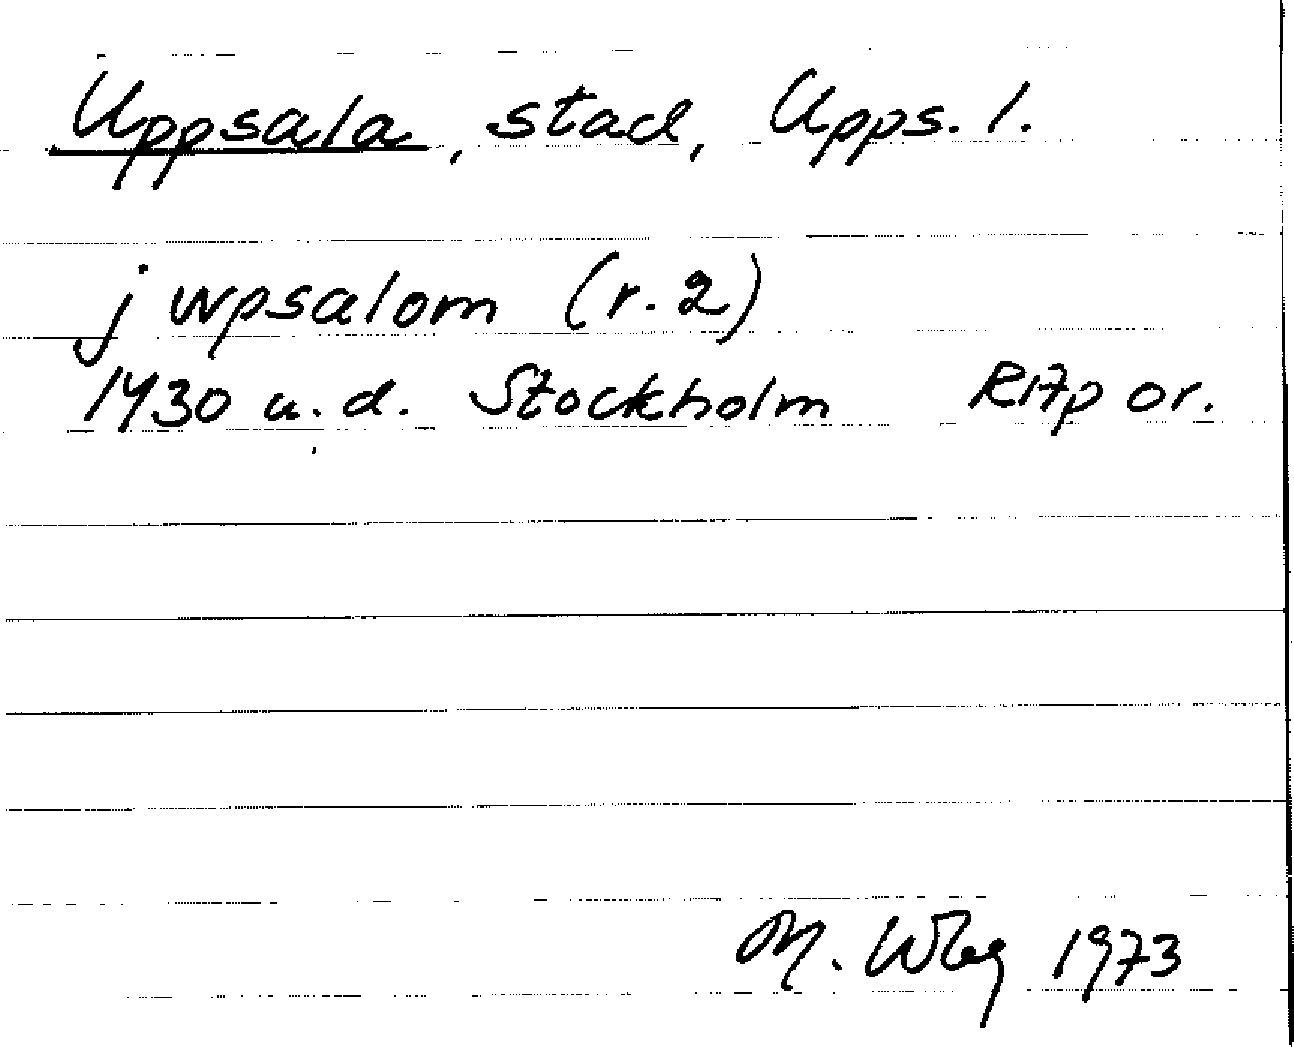 Uppsala, stad, Upps. l.
j wpsalom (r. 2)
1430 u. d. Stockholm RAp or.
M. Wbg 1973